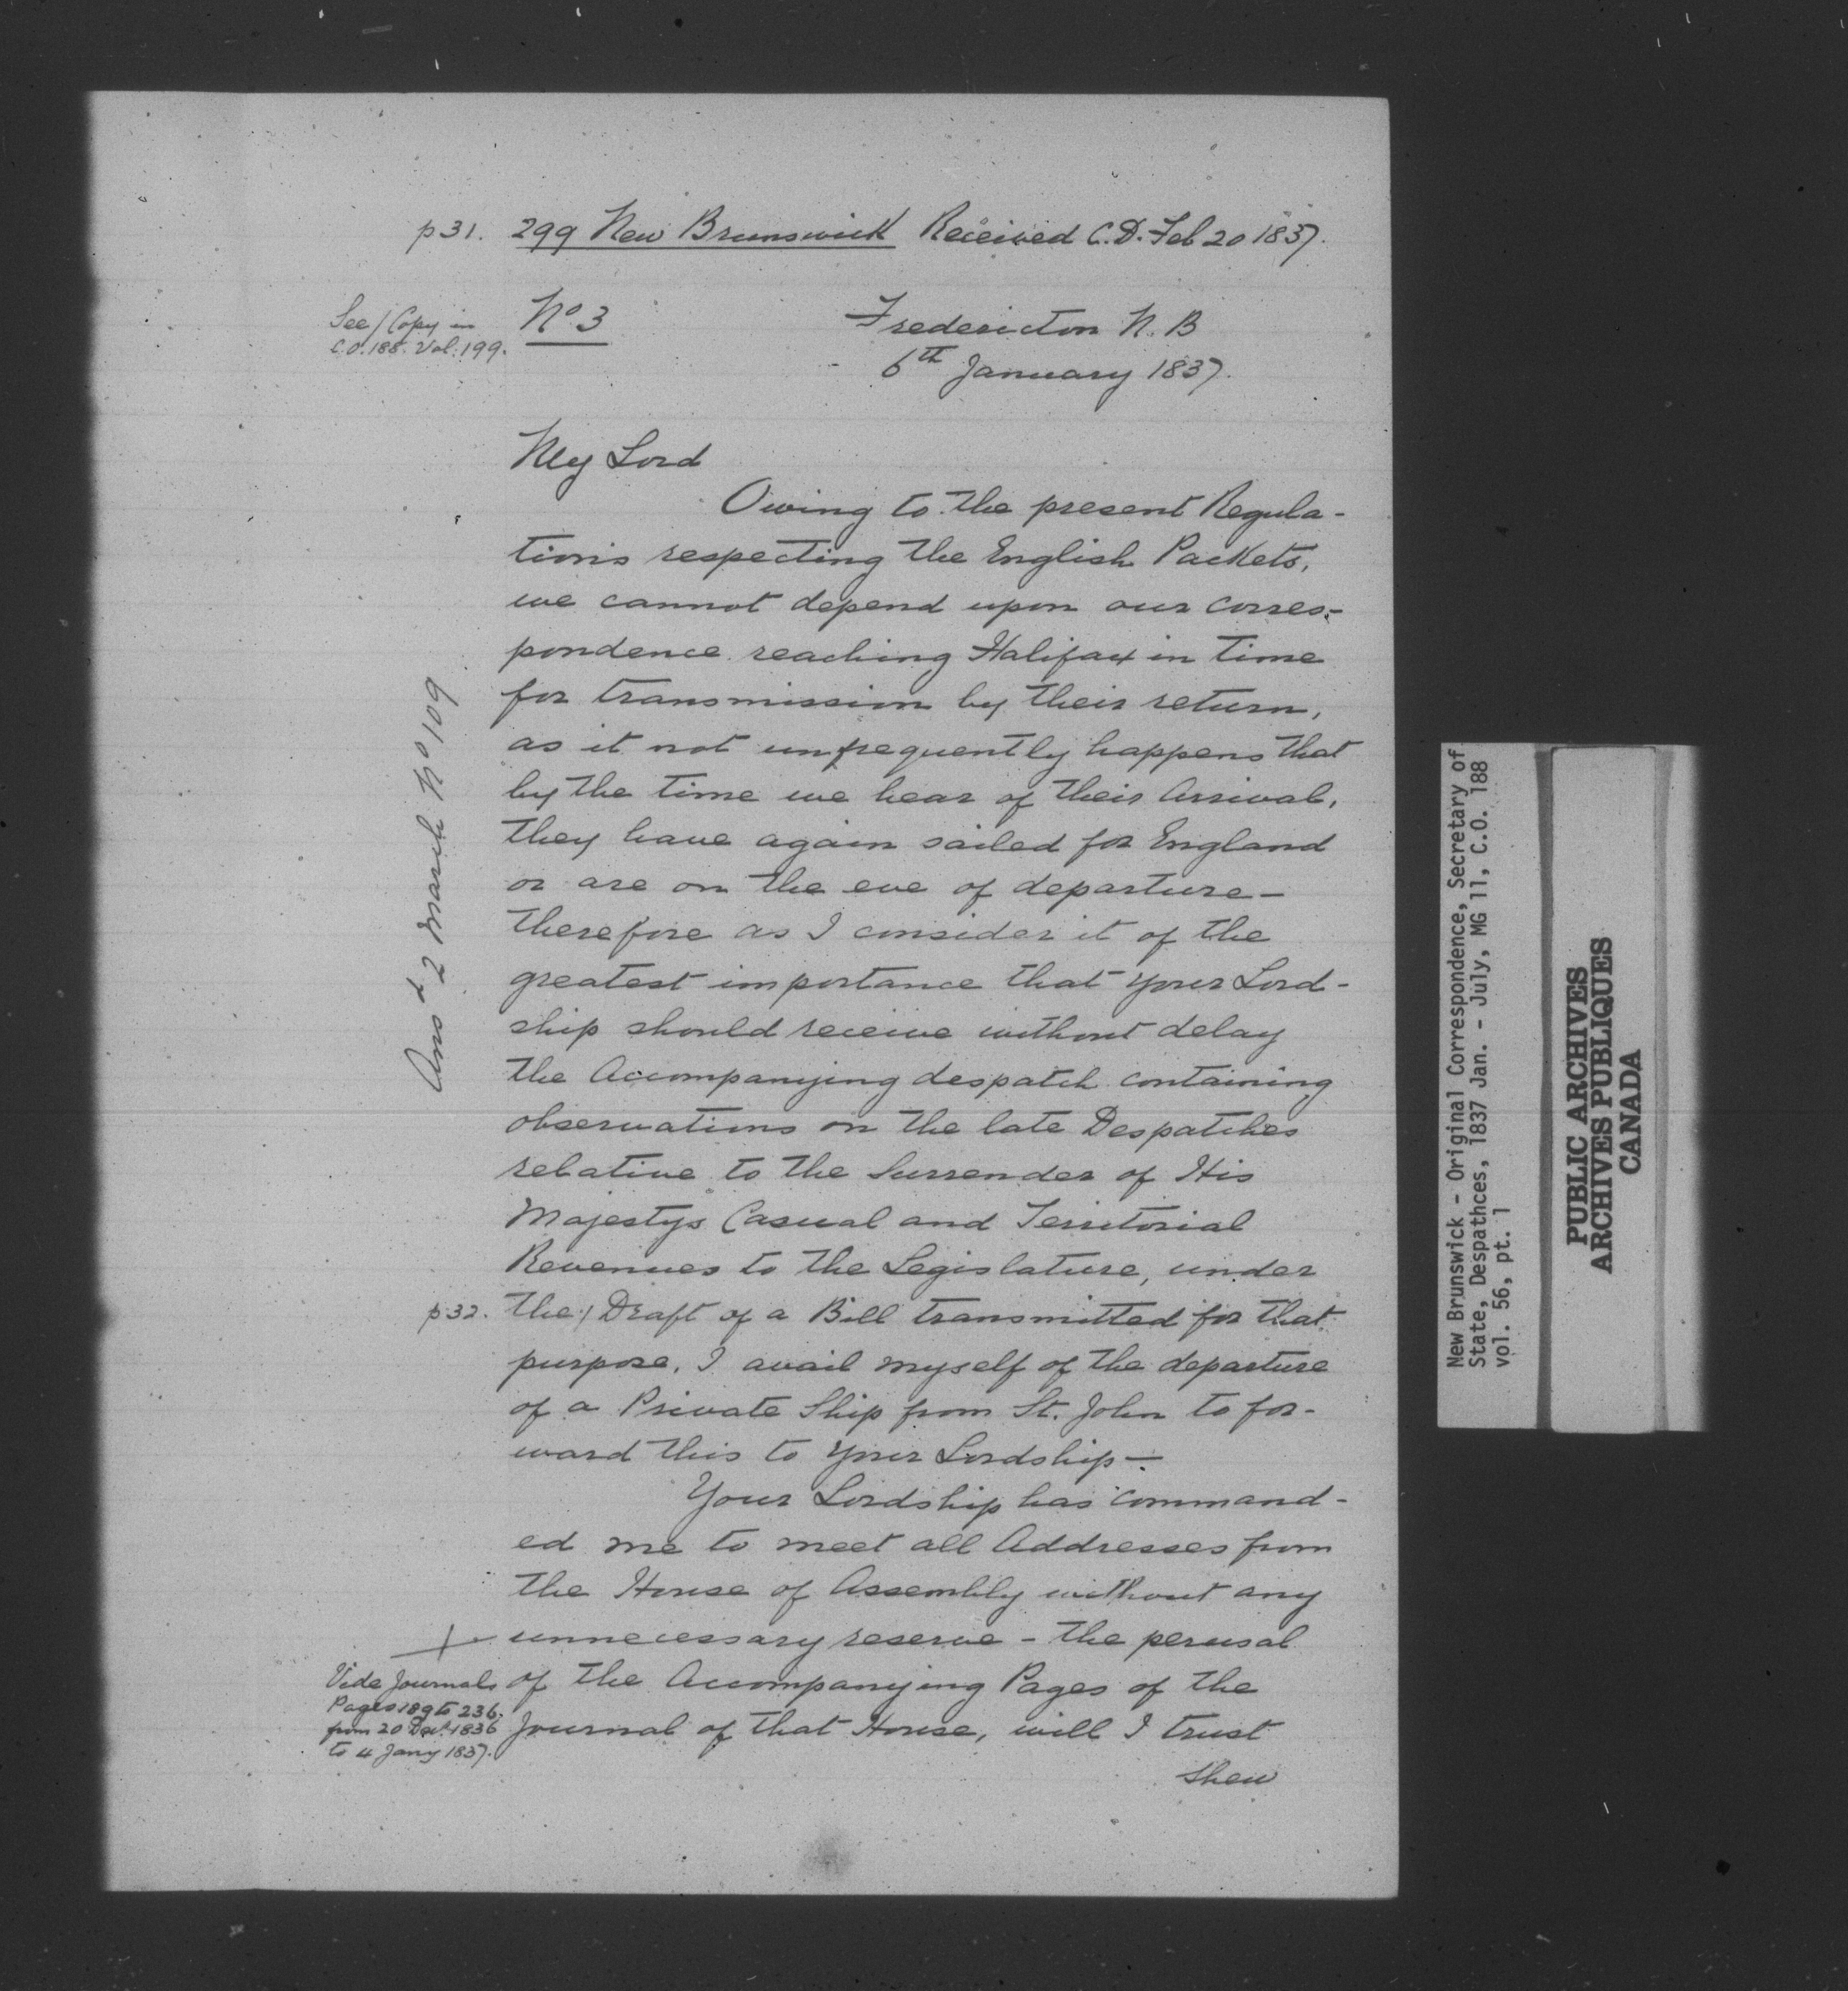 p 31. 299 New Brunswick Received C.D. Feb 20 1837.
See / Copy in
C.O. 188. Vol: 199.
No 3
Fredericton N. B
6th January 1837.
My Lord
Owing to the present Regula-
tions respecting the English Packets,
we cannot depend upon our corres-
pondence reaching Halifax in time
for transmission by their return,
as it not unfrequently happens that
by the time we hear of their Arrival,
they have again sailed for England
or are on the eve of departure —
therefore as I consider it of the
greatest importance that your Lord-
ship should receive without delay
the Accompanying despatch containing
observations on the late Despatches
relative to the Surrender of His
Majestys Casual and Territorial
Revenues to the Legislature, under
p 32. the / Draft of a Bill transmitted for that
purpose, I avail myself of the departure
of a Private Ship from St. John to for-
ward this to your Lordship —
Your Lordship has command-
ed me to meet all Addresses from
the House of Assembly without any
unnecessary reserve - the perusal
of the Accompanying Pages of the
Journal of that House, will I trust
shew
Ansd 2 March No 109
Vide Journals
Pages 189 to 236.
from 20 Decr 1836
to 4 Jany 1837.
New Brunswick - Original Correspondence, Secretary of
State, Despathces, 1837 Jan. - July, MG 11, C.O. 188
vol. 56, pt. 1
PUBLIC ARCHIVES
ARCHIVES PUBLIQUES
CANADA